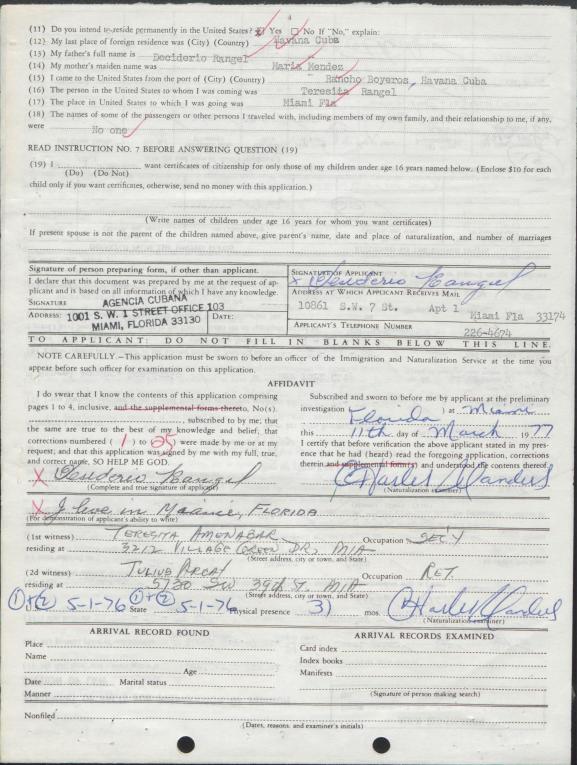 4
(11) Do you intend to reside permanently in the United States? Yes No If "No," explain:
(12) My last place of foreign residence was (City) (Country) Havana Cuba
(13) My father's full name is Deciderio Rangel
(14) My mother's maiden name was Maria Mendez
(15) I came to the United States from the port of (City) (Country) Rancho Boyeros, Havana Cuba
(16) The person in the United States to whom I was coming was Teresita Rangel
(17) The place in the United States to which I was going was Miami Fla
(18) The names of some of the passengers or other persons I traveled with, including members of my own family, and their relationship to me, if any,
were No one
READ INSTRUCTION NO. 7 BEFORE ANSWERING QUESTION (19)
(19) I want certificates of citizenship for only those of my children under age 16 years named below. (Enclose $10 for each
(Do) (Do Not)
child only if you want certificates, otherwise, send no money with this application.)
(Write names of children under age 16 years for whom you want certificates)
If present spouse is not the parent of the children named above, give parent's name, date and place of naturalization, and number of marriages
Signature of person preparing form, if other than applicant.
I declare that this document was prepared by me at the request of applicant and is based on all information of which I have any knowledge.
SIGNATURE AGENCIA CUBANA
ADDRESS: 1001 S. W. 1 STREET OFFICE 103 DATE:
MIAMI, FLORIDA 33130
SIGNATURE OF APPLICANT
x Desiderio Rangel
ADDRESS AT WHICH APPLICANT RECEIVES MAIL
10861 S.W. 7 St. Apt 1
Miami Fla 33174
APPLICANT'S TELEPHONE NUMBER
226-4674
TO APPLICANT: DO NOT FILL IN BLANKS BELOW THIS LINE.
NOTE CAREFULLY.—This application must be sworn to before an officer of the Immigration and Naturalization Service at the time you
appear before such officer for examination on this application.
AFFIDAVIT
I do swear that I know the contents of this application comprising
pages 1 to 4, inclusive, and the supplemental forms thereto, No(s).
, subscribed to by me; that
the same are true to the best of my knowledge and belief; that
corrections numbered (1) to (25) were made by me or at my
request; and that this application was signed by me with my full, true,
and correct name, SO HELP ME GOD.
X Desiderio Rangel
(Complete and true signature of applicant)
X I live in Miami, FLORIDA
(For demonstration of applicant's ability to write)
Subscribed and sworn to before me by applicant at the preliminary
investigation Florida) at Miami
this 11th day of March, 1977
I certify that before verification the above applicant stated in my presence
that he had (heard) read the foregoing application, corrections
therein and supplemental form(s) and understood the contents thereof.
Charles Sanders
(Naturalization examiner)
(1st witness) TERESITA AMENABAR Occupation SEC'Y
residing at 3212 VILLAGE GREEN DR, MIA
(Street address, city or town, and State)
(2d witness) Occupation RET.
residing at 5730 SW 39th ST. MIA
(Street address, city or town, and State)
1+2 5-1-76 State 1+2 5-1-76 Physical presence 31 mos. Charles Sanders
(Naturalization examiner)
ARRIVAL RECORD FOUND
Place
Name
Age
Date Marital status
Manner
ARRIVAL RECORDS EXAMINED
Card index
Index books
Manifests
(Signature of person making search)
Nonfiled
(Dates, reasons, and examiner's initials)